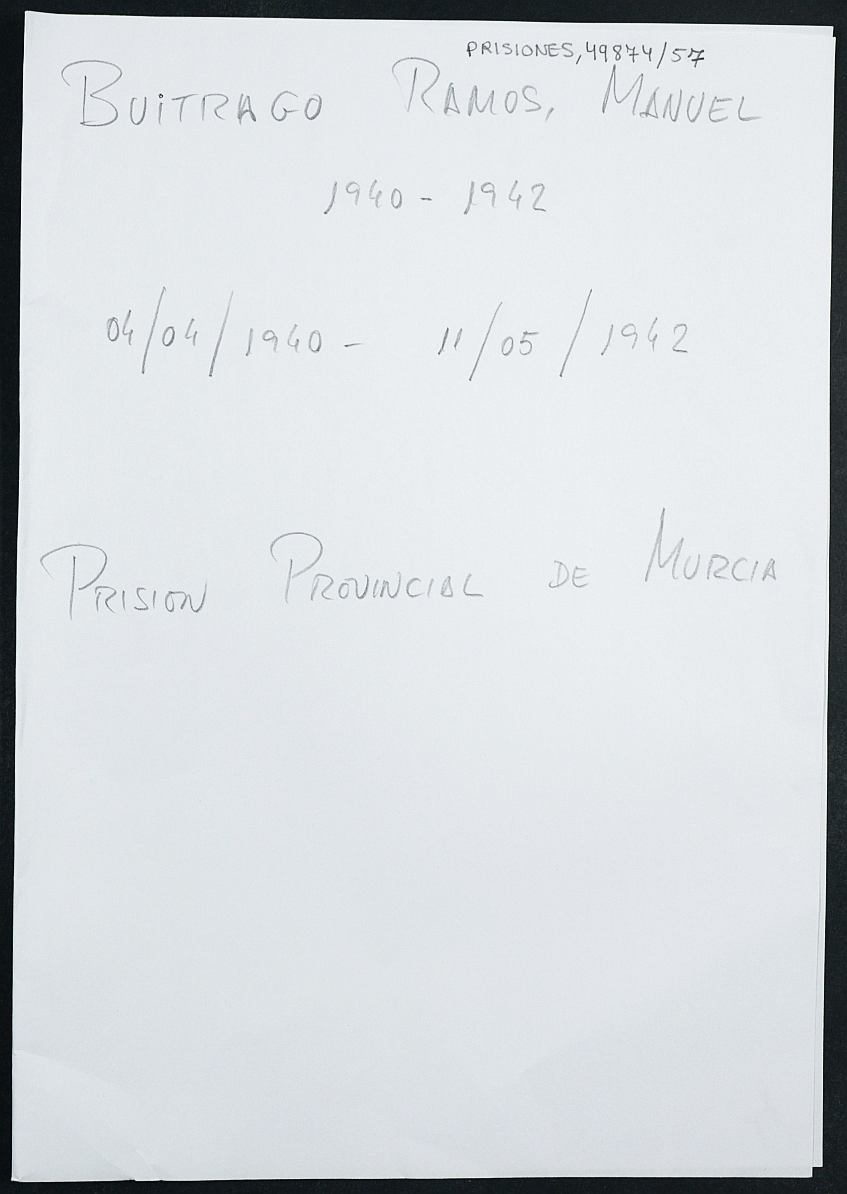 PRISIONES,49874/57
BUiTRAGO RAMOS, MANUEL
1940 - 1942
04/04/1940 - 11/05/1942
PRISION PROVINCIAL DE MURCIA